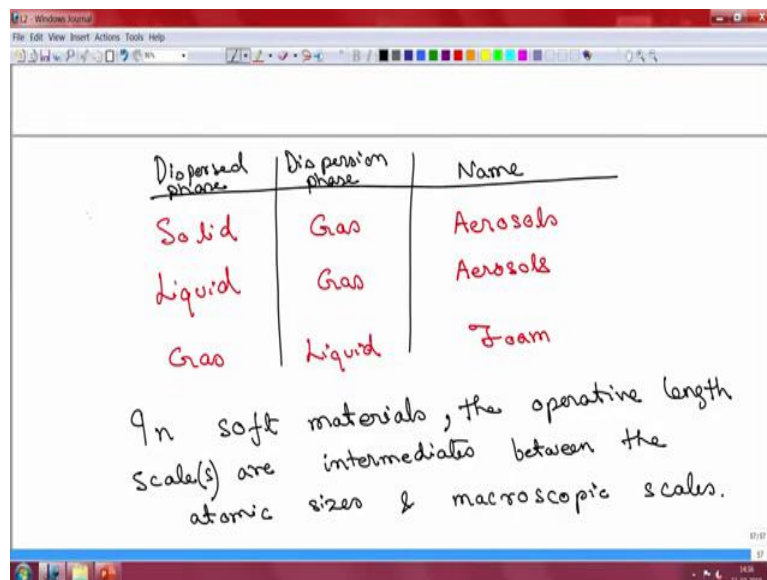 L2 - Windows Journal
File Edit View Insert Actions Tools Help
Dispersed phase Dispersion phase Name
Solid Gas Aerosols
Liquid Gas Aerosols
Gas Liquid Foam
In soft materials, the operative length
scale(s) are intermediates between the
atomic sizes & macroscopic scales.
57/57
57
14:36